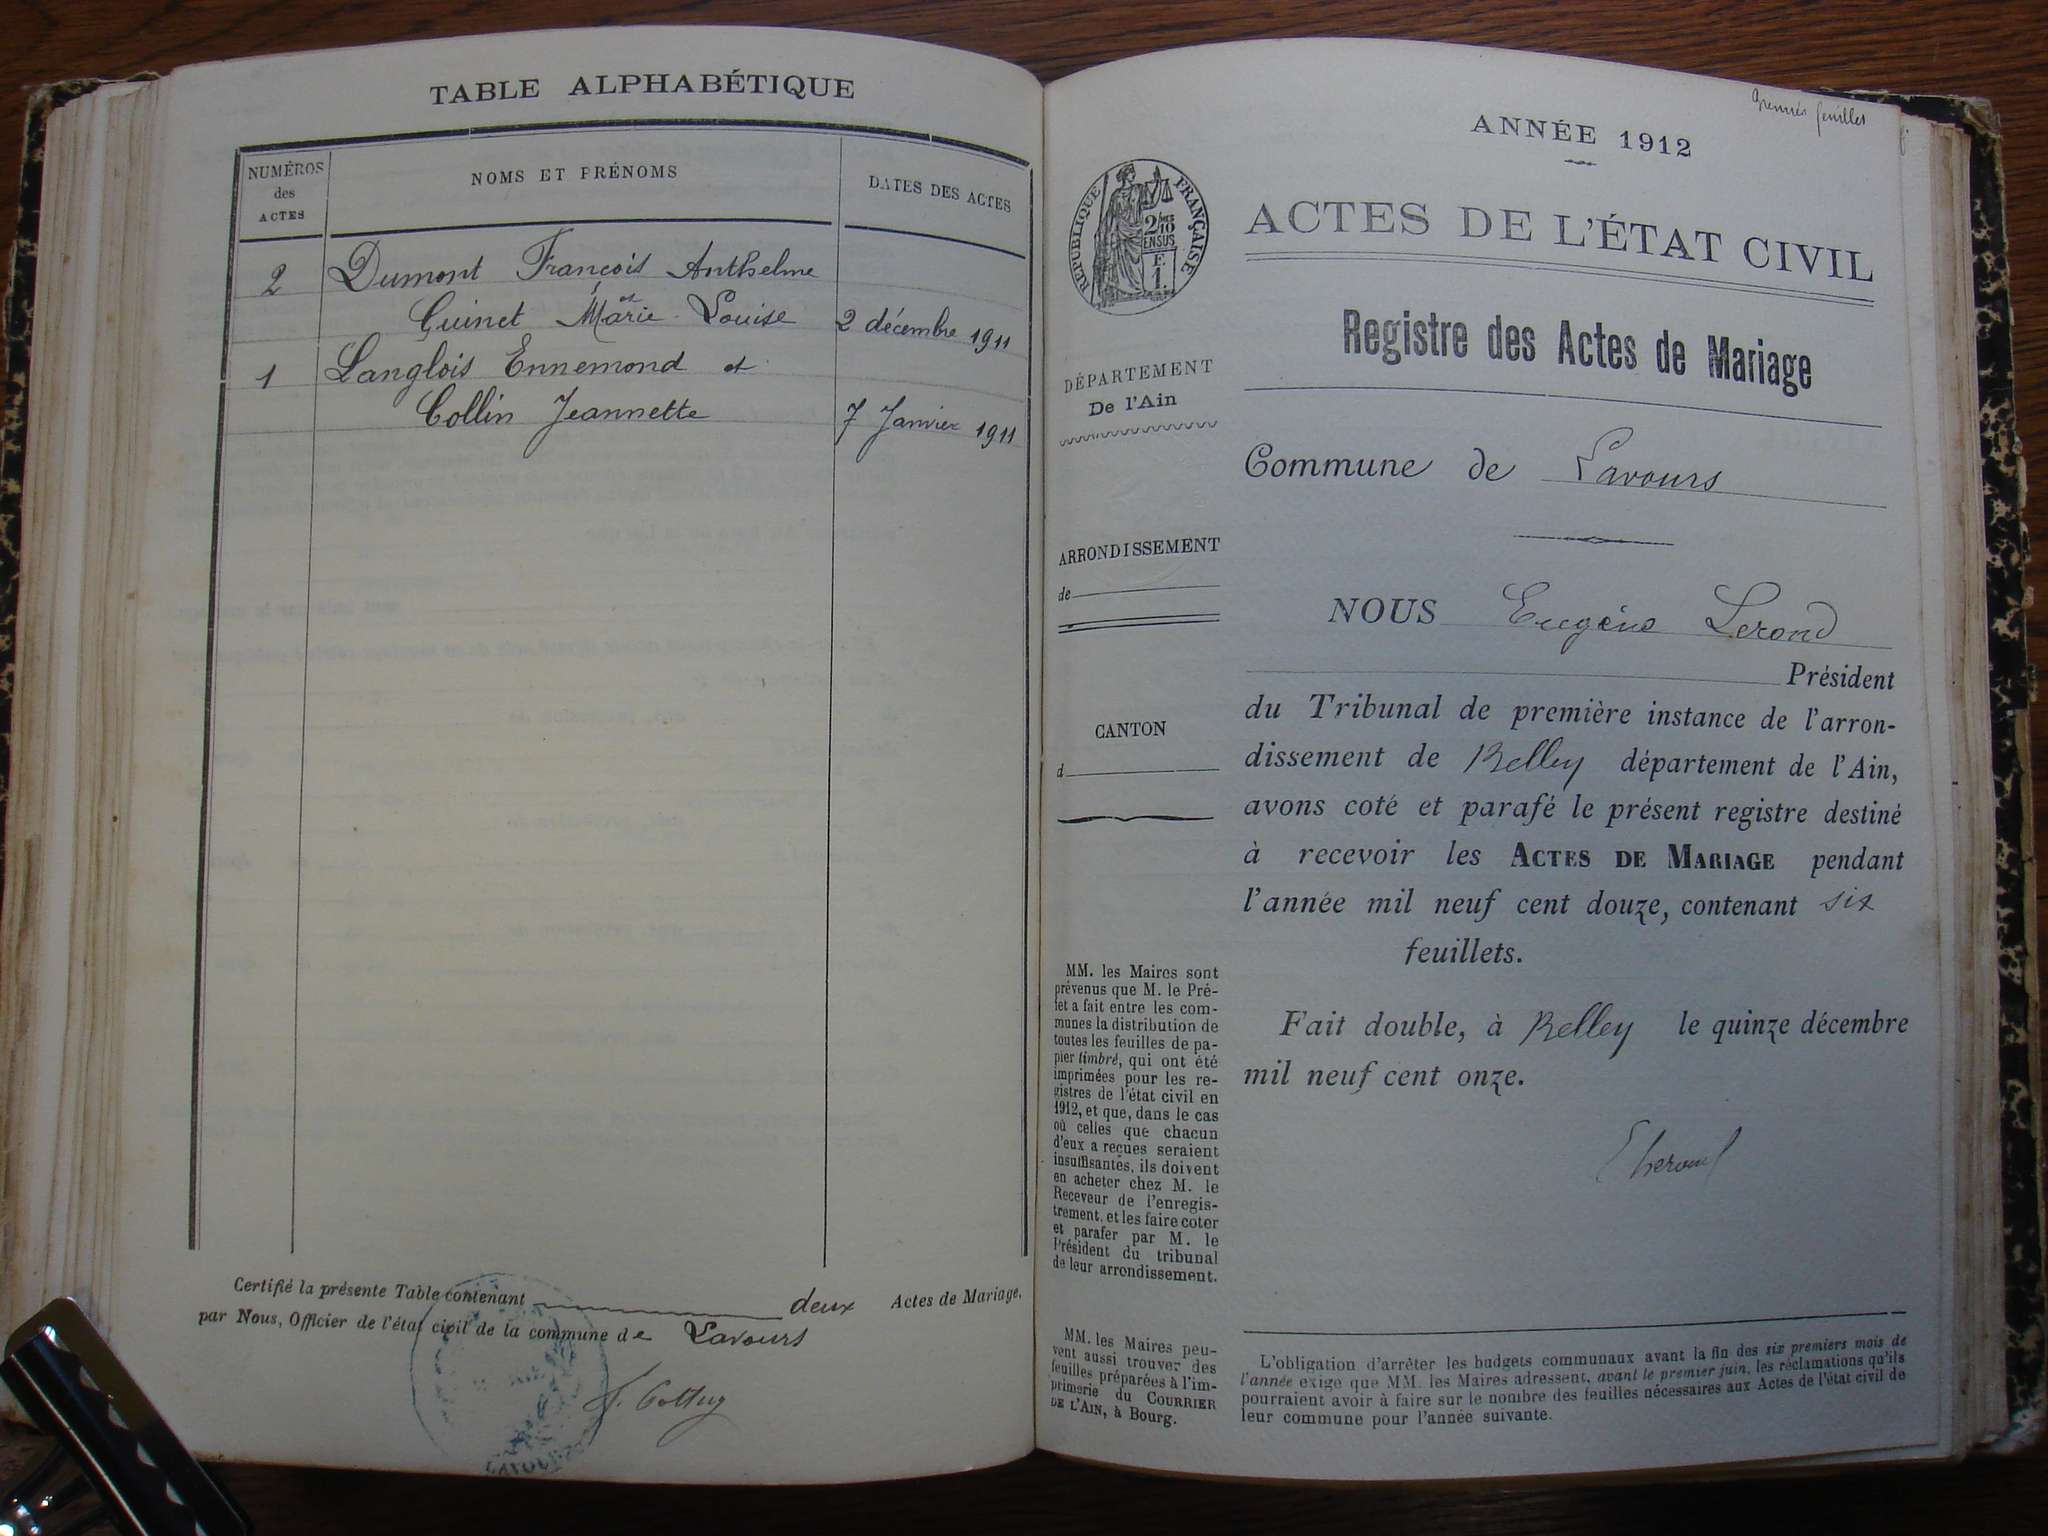 TABLE ALPHABÉTIQUE
NUMÉROS
des
ACTES
NOMS ET PRÉNOMS
DATES DES ACTES
2
Dumont François Anthelme
et
Guinet Marie-Louise
2 décembre 1911
1
Langlois Ennemond et
Collin Jeannette
7 Janvier 1911
Certifié la présente Table contenant deux Actes de Mariage,
par Nous, Officier de l'état civil de la commune de Lavours
ANNÉE 1912
feuillet
RÉPUBLIQUE FRANÇAISE
2/10
EN SUS
F.
1.
ACTES DE L'ÉTAT CIVIL
Registre des Actes de Mariage
DÉPARTEMENT
De l'Ain
Commune de Lavours
ARRONDISSEMENT
de
CANTON
d
NOUS Eugène Lerond
Président
du Tribunal de première instance de l'arron-
dissement de Belley département de l'Ain,
avons coté et parafé le présent registre destiné
à recevoir les ACTES DE MARIAGE pendant
l'année mil neuf cent douze, contenant six
feuillets.
Fait double, à Belley le quinze décembre
mil neuf cent onze.
MM. les Maires sont
prévenus que M. le Pré-
fet a fait entre les com-
munes la distribution de
toutes les feuilles de pa-
pier timbré, qui ont été
imprimées pour les re-
gistres de l'état civil en
1912, et que, dans le cas
où celles que chacun
d'eux a reçues seraient
insuffisantes, ils doivent
en acheter chez M. le
Receveur de l'enregis-
trement, et les faire coter
et parafer par M. le
Président du tribunal
de leur arrondissement.
MM. les Maires peu-
vent aussi trouver des
feuilles préparées à l'im-
primerie du COURRIER
DE L'AIN, à Bourg.
L'obligation d'arrêter les budgets communaux avant la fin des six premiers mois de
l'année exige que MM. les Maires adressent, avant le premier juin, les réclamations qu'ils
pourraient avoir à faire sur le nombre des feuilles nécessaires aux Actes de l'état civil de
leur commune pour l'année suivante.